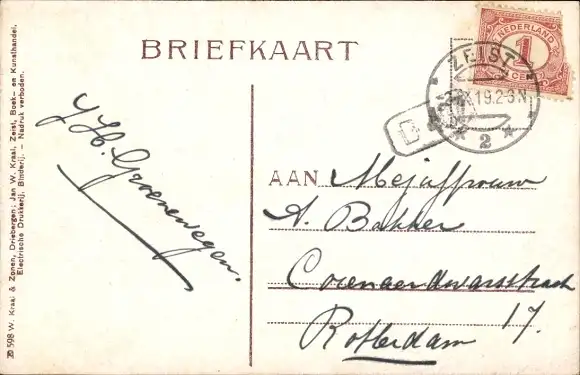 W. Kraal & Zonen, Driebergen; Jan W. Kraal, Zeist, Boek- en Kunsthandel.
Electrische Drukkerij, Binderij. – Nadruk verboden.
598
BRIEFKAART
NEDERLAND
1
CENT
ZEIST
X19.2-3N
2
J H. Groenewegen.
AAN Mejuffrouw
A. Bakker
17.
Rotterdam